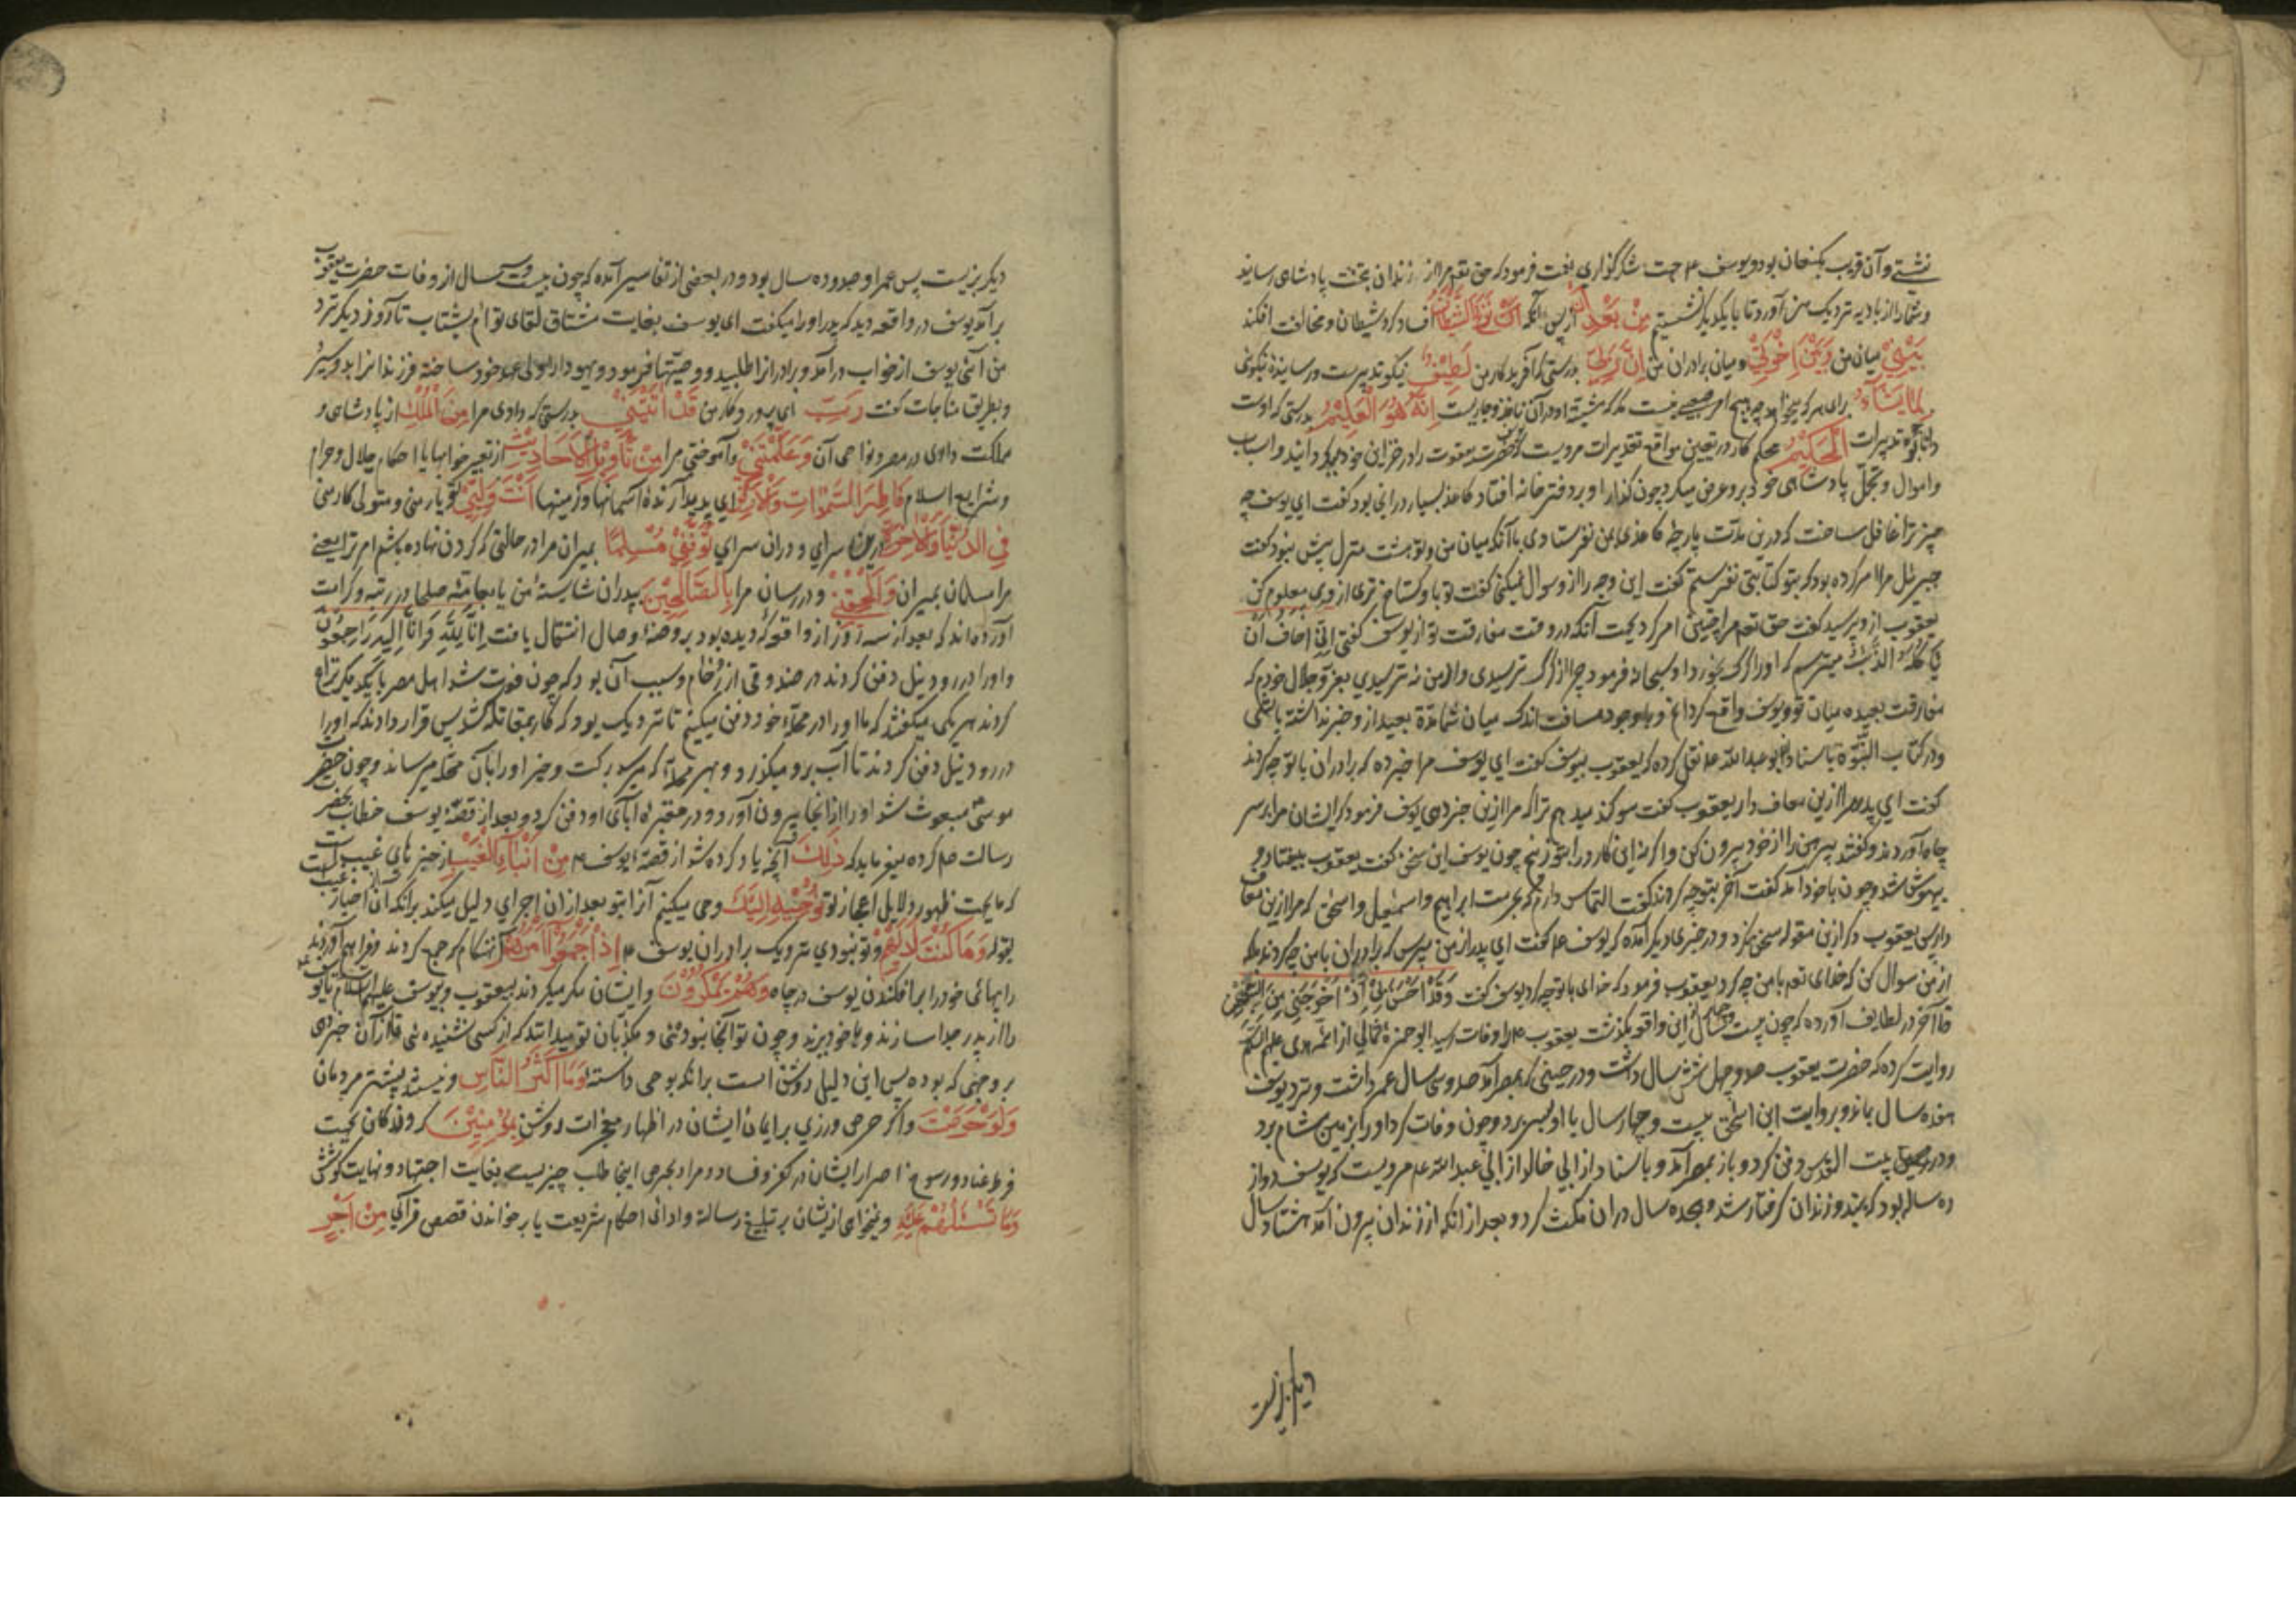 نشستی و آن قریب بکنعان بود و یوسف ع جهت شکرگزاری نعمت فرمود که حق تعم مرا از زندان بتخت پادشاهی رسانید
و شما را از بادیه نزدیک من آورد تا با یکدیگر نشستیم مِنْ بَعْدِ اَنْ از پس آنکه اَنْ نَزَغَ الشَّیْطَانُ افساد کرد شیطان و مخالفت افکند
بَیْنِیْ میان من وَبَیْنَ اِخْوَتِیْ و میان برادران من اِنَّ رَبِّیْ بدرستی که آفریدکار من لَطِیْفٌ نیکو تدبیرست و رساننده نیکوئی
لِمَا یَشَآءُ برای هر که میخواهد چه هیچ امر صعبی نیست مکر که مشیت او در آن نافذ و جاریست اِنَّهُ هُوَ الْعَلِیْمُ بدرستی که اوست
دانا بوجوه تدبیرات اَلْحَکِیْمُ محکم کار در تعیین مواقع تقدیرات مرویست که یوسف حضرت یعقوب را در خزاین خود میگردانید و اسباب
و اموال و تجمل پادشاهی خود برو عرض میکرد چون گذار او بر دفترخانه افتاد کاغذ بسیار در آنجا بود گفت ای یوسف چه
چیز ترا غافل ساخت که درین مدت پارچه کاغذی بمن نفرستادی با آنکه میان من و تو هشت منزل بیش نبود گفت
جبرئیل مرا امر کرده بود که بتو کتابتی نفرستم گفت این وجه را ازو سوال نمیکنی گفت تو با او گستاخ تری از وی معلوم کن
یعقوب ازو پرسید گفت حق تعم مرا چنین امر کرد بجهت آنکه در وقت مفارقت تو از یوسف گفتی اِنِّی اَخَافُ اَنْ
یَاْکُلَهُ الذِّئْبُ میترسم که او را گرگ بخورد او سبحانه فرمود چرا از گرگ ترسیدی و از من نه ترسیدی بعزّ و جلال خودم که
مفارقت بعیده میان تو و یوسف واقع گردانم و با وجود مسافت اندک میان شما مدة بعید از و خبر نداشته باشی
و در کتاب النبوة باسناد از ابو عبدالله ع نقل کرده که یعقوب بیوسف گفت ای یوسف مرا خبر ده که برادران با تو چه کردند
گفت ای پدر مرا ازین معاف دار یعقوب گفت سوگند میدهم ترا که مرا ازین خبر دهی یوسف فرمود که ایشان مرا بر سر
چاه آوردند و گفتند پیرهن را از خود بیرون کن و اگر نه این کار در ابتو زنیم چون یوسف این سخن گفت یعقوب بیفتاد و
بیهوش شد و چون با خود آمد گفت آخر بتو چه کردند گفت التماس دارم که بحرمت ابراهیم و اسمعیل و اسحق که مرا ازین معاف
داری یعقوب دگر ازین مقوله سخن نکرد و در خبری دیگر آمده که یوسف ع گفت ای پدر از من مپرس که برادران با من چه کردند بلکه
از من سوال کن که خدای تعم با من چه کرد یعقوب فرمود که خدای با تو چه کرد یوسف گفت وَقَدْ اَحْسَنَ بِیْ اِذْ اَخْرَجَنِی مِنَ السِّجْنِ
تا آخر در لطایف آورده که چون بیست و چهار سال ازین واقعه بگذشت یعقوب ع را وفات رسید ابو حمزه ثمالی از ائمه هدی علیهم السلم
روایت کرده که حضرت یعقوب صد و چهل و شش سال داشت و در حینی که بمصر آمد صد و سی سال عمر داشت و نزد یوسف
هفده سال بماند و بروایت ابن اسحق بیست و چهار سال با او بسر برد و چون وفات کرد او را بزمین شام برد
و در بیت المقدس دفن کرد و باز بمصر آمد و باسناد از ابی خالد از ابی عبدالله ع مرویست که یوسف دوازده
ده ساله بود که ببند و زندان گرفتار شد و هجده سال در آن مکث کرد و بعد از آنکه از زندان بیرون آمد هشتاد سال
دیگر بزیست
دیگر بزیست پس عمر او صد و ده سال بود و در بعضی از تفاسیر آمده که چون بیست و سه سال از وفات حضرت یعقوب
برآمد یوسف در واقعه دید که پدر او را میگفت ای یوسف بغایت مشتاق لقای توام بشتاب تا روز دیگر نزد
من آئی یوسف از خواب درآمد و برادرانرا طلبید و وصیتها فرمود و یهودا را ولی عهد خود ساخته فرزندانرا بدو سپرد
و بطریق مناجات گفت رَبِّ ای پروردکار من قَدْ اٰتَیْتَنِیْ بدرستی که دادی مرا مِنَ الْمُلْکِ از پادشاهی و
مملکت دادی در مصر و نواحی آن وَعَلَّمْتَنِیْ و آموختی مرا مِنْ تَأْوِیْلِ الْاَحَادِیْثِ از تعبیر خوابها یا احکام حلال و حرام
و شرایع اسلام فَاطِرَ السَّمٰوَاتِ وَالْاَرْضِ ای پدید آرندهٔ آسمانها و زمینها اَنْتَ وَلِیِّیْ تو یار منی و متولی کار منی
فِی الدُّنْیَا وَالْاٰخِرَةِ درین سرای و در آن سرای تَوَفَّنِیْ مُسْلِمًا بمیران مرا در حالتی که گردن نهاده باشم امر ترا یعنی
مرا مسلمان بمیران وَاَلْحِقْنِیْ و در رسان مرا بِالصَّالِحِیْنَ بپدران شایستهٔ من یا بعامهٔ صلحا در رتبه و کرامت
آورده‌اند که بعد از سه روز از واقعهٔ که دیده بود بروضهٔ وصال انتقال یافت اِنَّا لِلّٰهِ وَاِنَّا اِلَیْهِ رَاجِعُوْنَ
و او را در رود نیل دفن کردند در صندوقی از رخام و سبب آن بود که چون فوت شد اهل مصر با یکدیگر نزاع
کردند هر یکی میگفتند که ما او را در محلّه خود دفن میکنیم تا نزدیک بود که کار بمقاتله کشد پس قرار دادند که او را
در رود نیل دفن کردند تا آب برو میگذرد و بهر محله که میرسد برکت و خیر او را بآن محله میرساند و چون حضرت
موسی ع مبعوث شد او را از آنجا بیرون آورد و در مقبرهٔ آبای او دفن کرد و بعد از قصهٔ یوسف خطاب بحضرت
رسالت صلم کرده میفرماید که ذٰلِکَ آنچه یاد کرده شد از قصهٔ یوسف ع مِنْ اَنْبَآءِ الْغَیْبِ از خبرهای غیب است
که ما بجهت ظهور دلایل اعجاز تو نُوْحِیْهِ اِلَیْکَ وحی میکنیم آنرا بتو بعد از آن اجرای دلیل میکند برانکه آن اخبار غیب است
بقوله وَمَا کُنْتَ لَدَیْهِمْ و تو نبودی نزدیک برادران یوسف ع اِذْ اَجْمَعُوْا اَمْرَهُمْ آنهنکام که جمع کردند و فراهم آوردند
رایهای خود را بر افکندن یوسف در چاه وَهُمْ یَمْکُرُوْنَ و ایشان مکر میکردند بیعقوب و یوسف علیهما السلام تا یوسف
را از پدر جدا سازند و با خود برند و چون تو آنجا نبودئی و مکذبان تو میدانند که از کسی نشنیده ئی تا از آن خبر دهی
بر وجهی که بوده پس این دلیل روشن است برانکه بوحی دانسته وَمَا اَکْثَرُ النَّاسِ و نیستند بیشتر مردمان
وَلَوْ حَرَصْتَ و اگر حرص ورزی بر ایمان ایشان در اظهار معجزات روشن بِمُؤْمِنِیْنَ گروندکان بجهت
فرط عناد و رسوخ اصرار ایشان در کفر و فساد و مراد بحرص اینجا طلب چیزیست بغایت اجتهاد و نهایت کوشش
وَمَا تَسْئَلُهُمْ عَلَیْهِ و نمیخواهی ازیشان بر تبلیغ رسالت و ادای احکام شریعت یا بر خواندن قصص قرآنی مِنْ اَجْرٍ